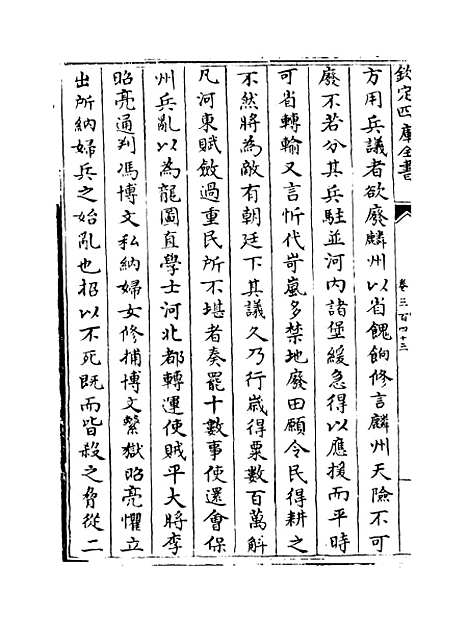 欽定四庫全書
卷三百四十三
方用兵議者欲廢麟州以省餽餉修言麟州天險不可
廢不若分其兵駐並河內諸堡緩急得以應援而平時
可省轉輸又言忻代岢嵐多禁地廢田願令民得耕之
不然將為敵有朝廷下其議久乃行嵗得粟數百萬斛
凡河東賦斂過重民所不堪者奏罷十數事使還會保
州兵亂以為龍圖直學士河北都轉運使賊平大將李
昭亮通判馮博文私納婦女修捕博文繫獄昭亮懼立
出所納婦兵之始亂也招以不死既而皆殺之脅從二